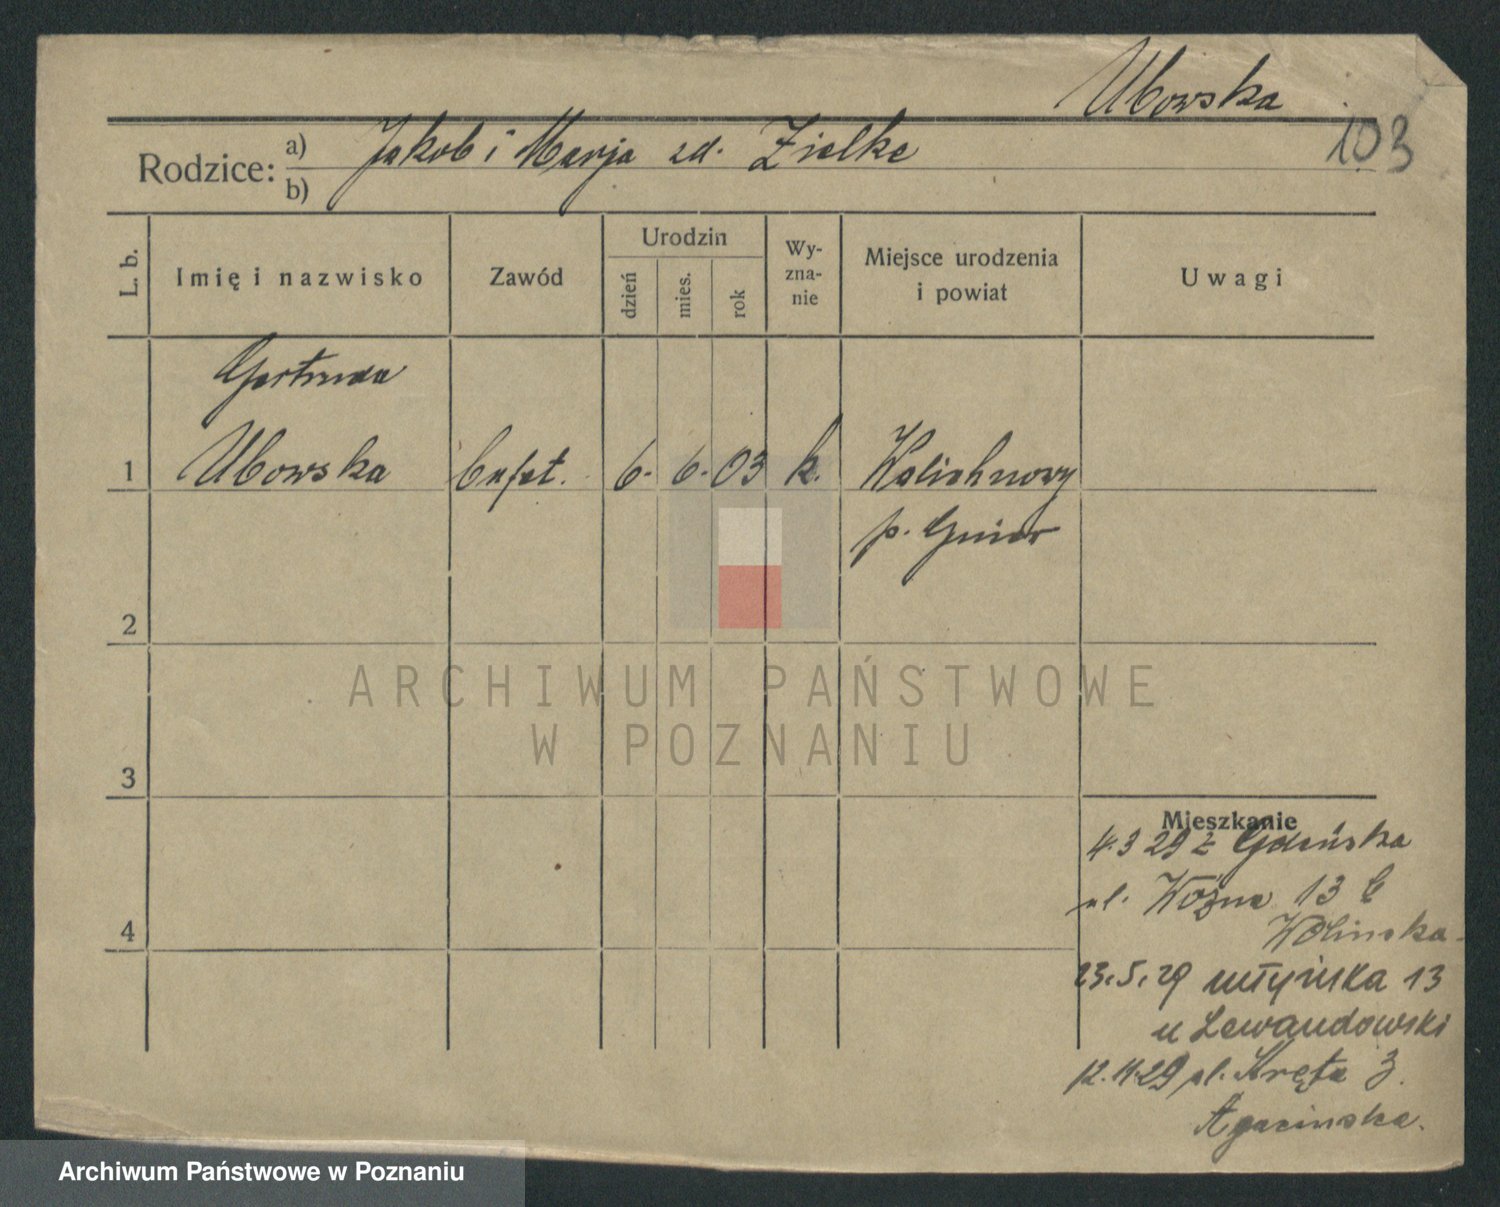 Ubowska
103
Rodzice: a) Jakob i Marja zd. Zielke
b)
L. b.
Imię i nazwisko
Zawód
Urodzin
dzień
mies.
rok
Wy-
zna-
nie
Miejsce urodzenia
i powiat
Uwagi
Gertruda
1 Ubowska bufet. 6. 6. 03 k. Walichnowy
p. Gniew
2
3
4
Mieszkanie
4.3 29 z Gdańska
ul. Woźna 13 b
Wolinska
23.5.29 Młyńska 13
u Lewandowski
12.11.29 ul. Kręta 3.
Agacinska.
ARCHIWUM PAŃSTWOWE
W POZNANIU
Archiwum Państwowe w Poznaniu